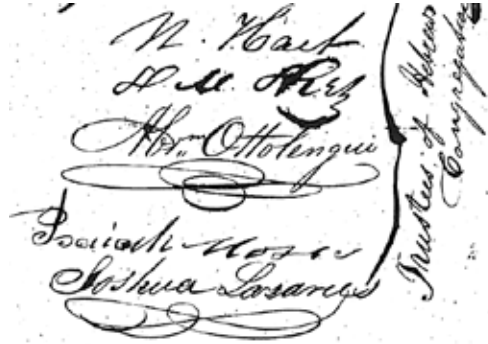 N. Hart
Abrm Ottolengui
Isaiah Moses
Joshua Lazarus
Trustees of Hebrew
Congregation